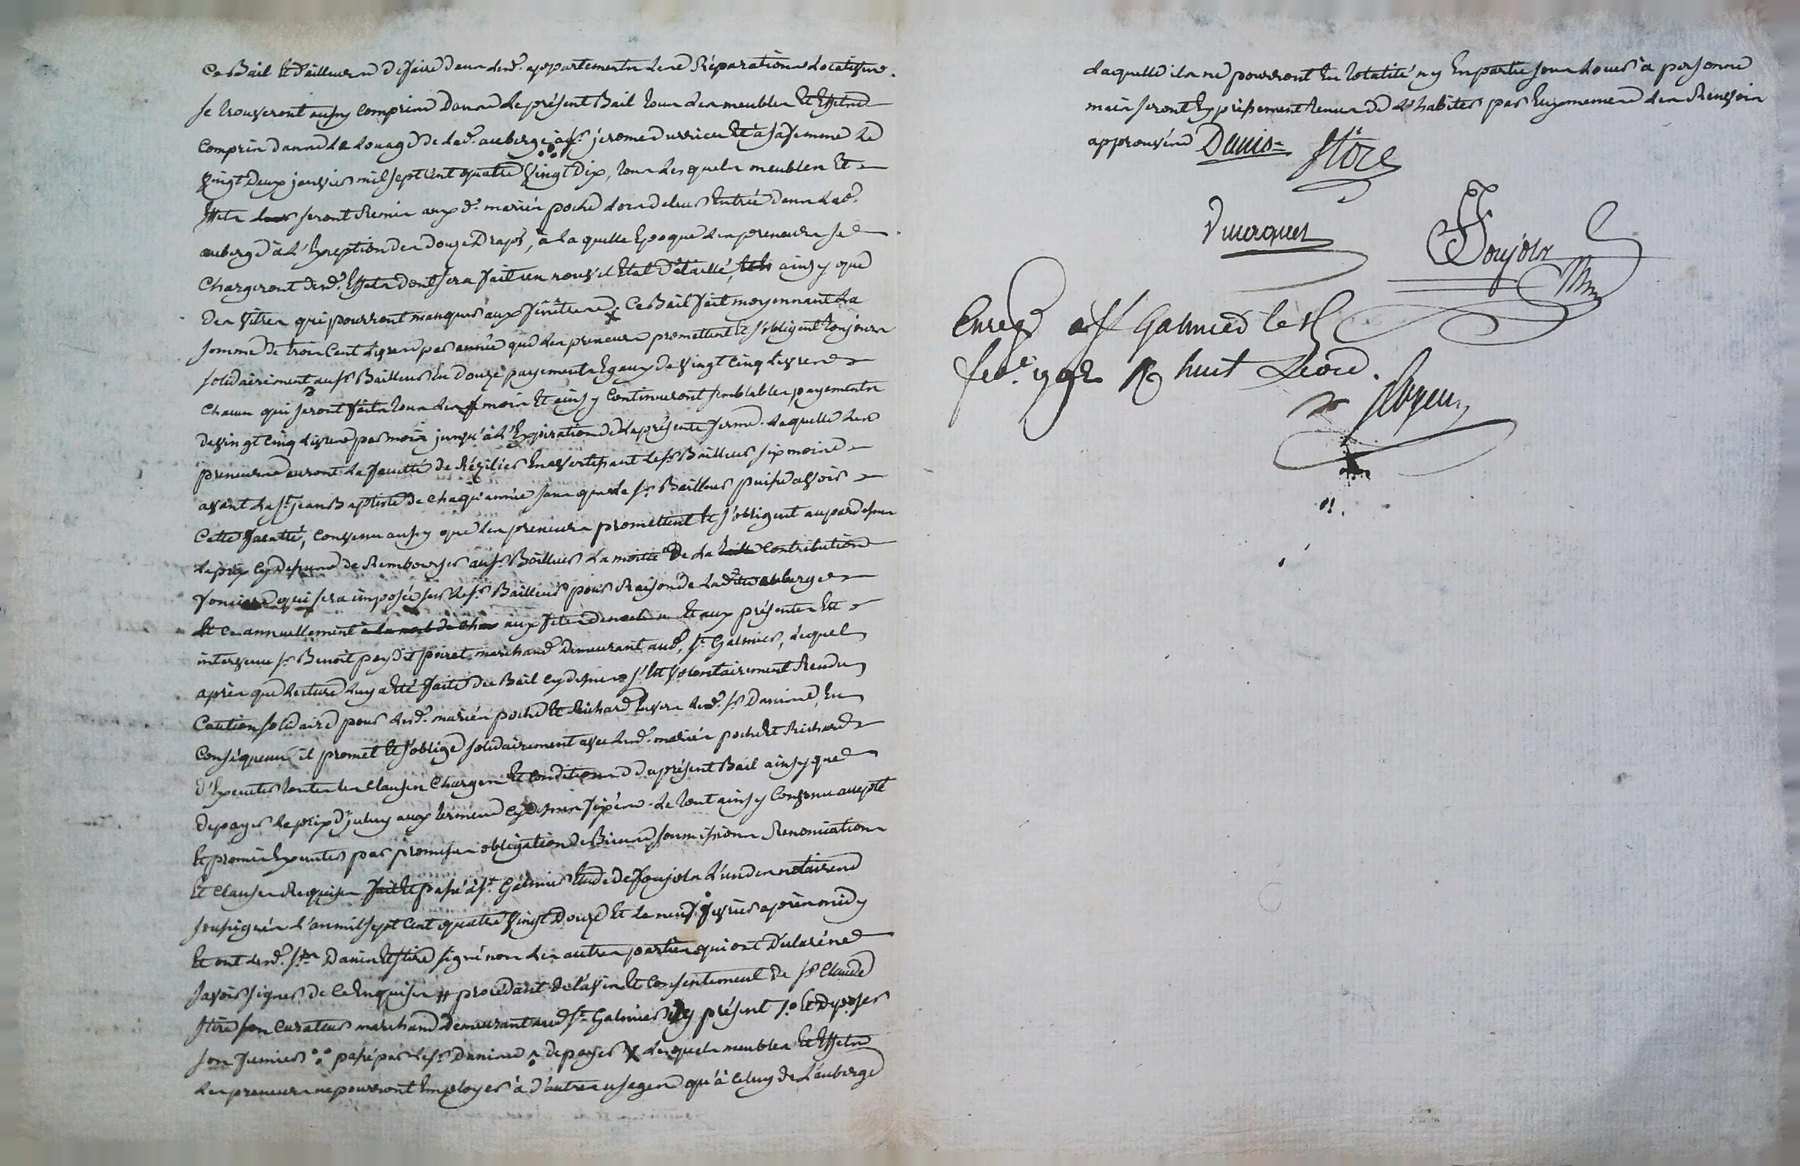 ce Bail et d'ailleurs de faire dans lesd. appartements les Réparations locatives.
se trouveront aussy compris dans le présent Bail tous les meubles et Effets
compris dans le Louage de lad. auberge à jerome et à sa femme le
vingt deux janvier mil sept cent quatre vingt Dix, tous lesquels meubles et
effets seront Remis auxd. mariés poche lors de leur Entrée dans lad.
auberge à l'Exception des Douze Draps, à la quelle Epoque les preneurs se
chargeront desd. Effets dont sera fait un nouvel Etat détaillé, ainsy que
des vitres qui pourront manquer aux fenêtres. Ce Bail fait moyennant la
somme de trois cent livres par année que les preneurs promettent et s'obligent toujours
solidairement au Sr. Bailleur En Douze payements Egaux de vingt cinq livres
chacun qui seront faits tous les mois Et ainsy continueront semblables payements
de vingt cinq livres par mois jusqu'à l'Expiration de la présente ferme. Laquelle les
preneurs auront la faculté de Résilier En avertissant le Sr. Bailleur six mois
avant la St. jean Baptiste de chaqu'année sans que le Sr. Bailleur puisse avoir
cette faculté, convenu aussy que les preneurs promettent et s'obligent au par dessus
le prix cy dessus de Rembourser au Sr. Bailleur la moitié de la contribution
fonciere qui sera imposée sur le Sr. Bailleur pour Raison de lad. auberge
Et ce annuellement aux fetes de noel Et aux présentes Est
intervenu Sr. Benoit marchand demeurant aud. St. Galmier, Lequel
après que lecture luy a été faite du Bail cydessus s'est volontairement Rendu
Caution solidaire pour lesd. mariés poche et Richard Envers led. Sr. Danis, En
conséquence il promet et s'oblige solidairement avec lesd. mariés poche et Richard
d'Executer toutes les clauses charges et conditions du présent Bail ainsy que
de payer le prix d'iceluy aux termes cydessus fixés. Le tout ainsy convenu accepté
Et promis Executer par promesses obligation de Biens soumissions Renonciations
et clauses Requises fait et passé à St. Galmier Etude de Foujols L'un des notaires
soussignés l'an mil sept cent quatre vingt Douze et le neuf fevrier après midy
Et ont lesd. Srs. Danis et Stire signé non les autres parties qui ont déclaré ne
savoir signer de ce Enquises # procédant de l'avis et consentement de Sr. Claude
Stire son curateur marchand demeurant aud. St. Galmier icy présent
son fumier passé par le Sr. Danis de payer X lesquels meubles et Effets
les preneurs ne pourront Employer à d'autres usages qu'à celuy de l'auberge
laquelle ils ne pourront En totalité ny En partie sous Louer à personne
mais seront Expressement tenus de l'habiter par Euxmemes les Renvois
approuvés Danis
Stire
Foujols
Enregé à St Galmier le
fev. 1792 R huit